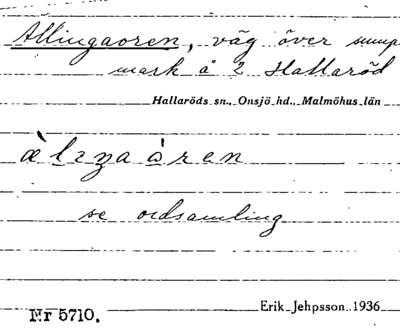 Ällingaoren, väg över sump
mark å 2 Hallaröd
Hallaröds sn., Onsjö hd., Malmöhus län
se ordsamling
Erik Jehpsson 1936
Nr 5710.